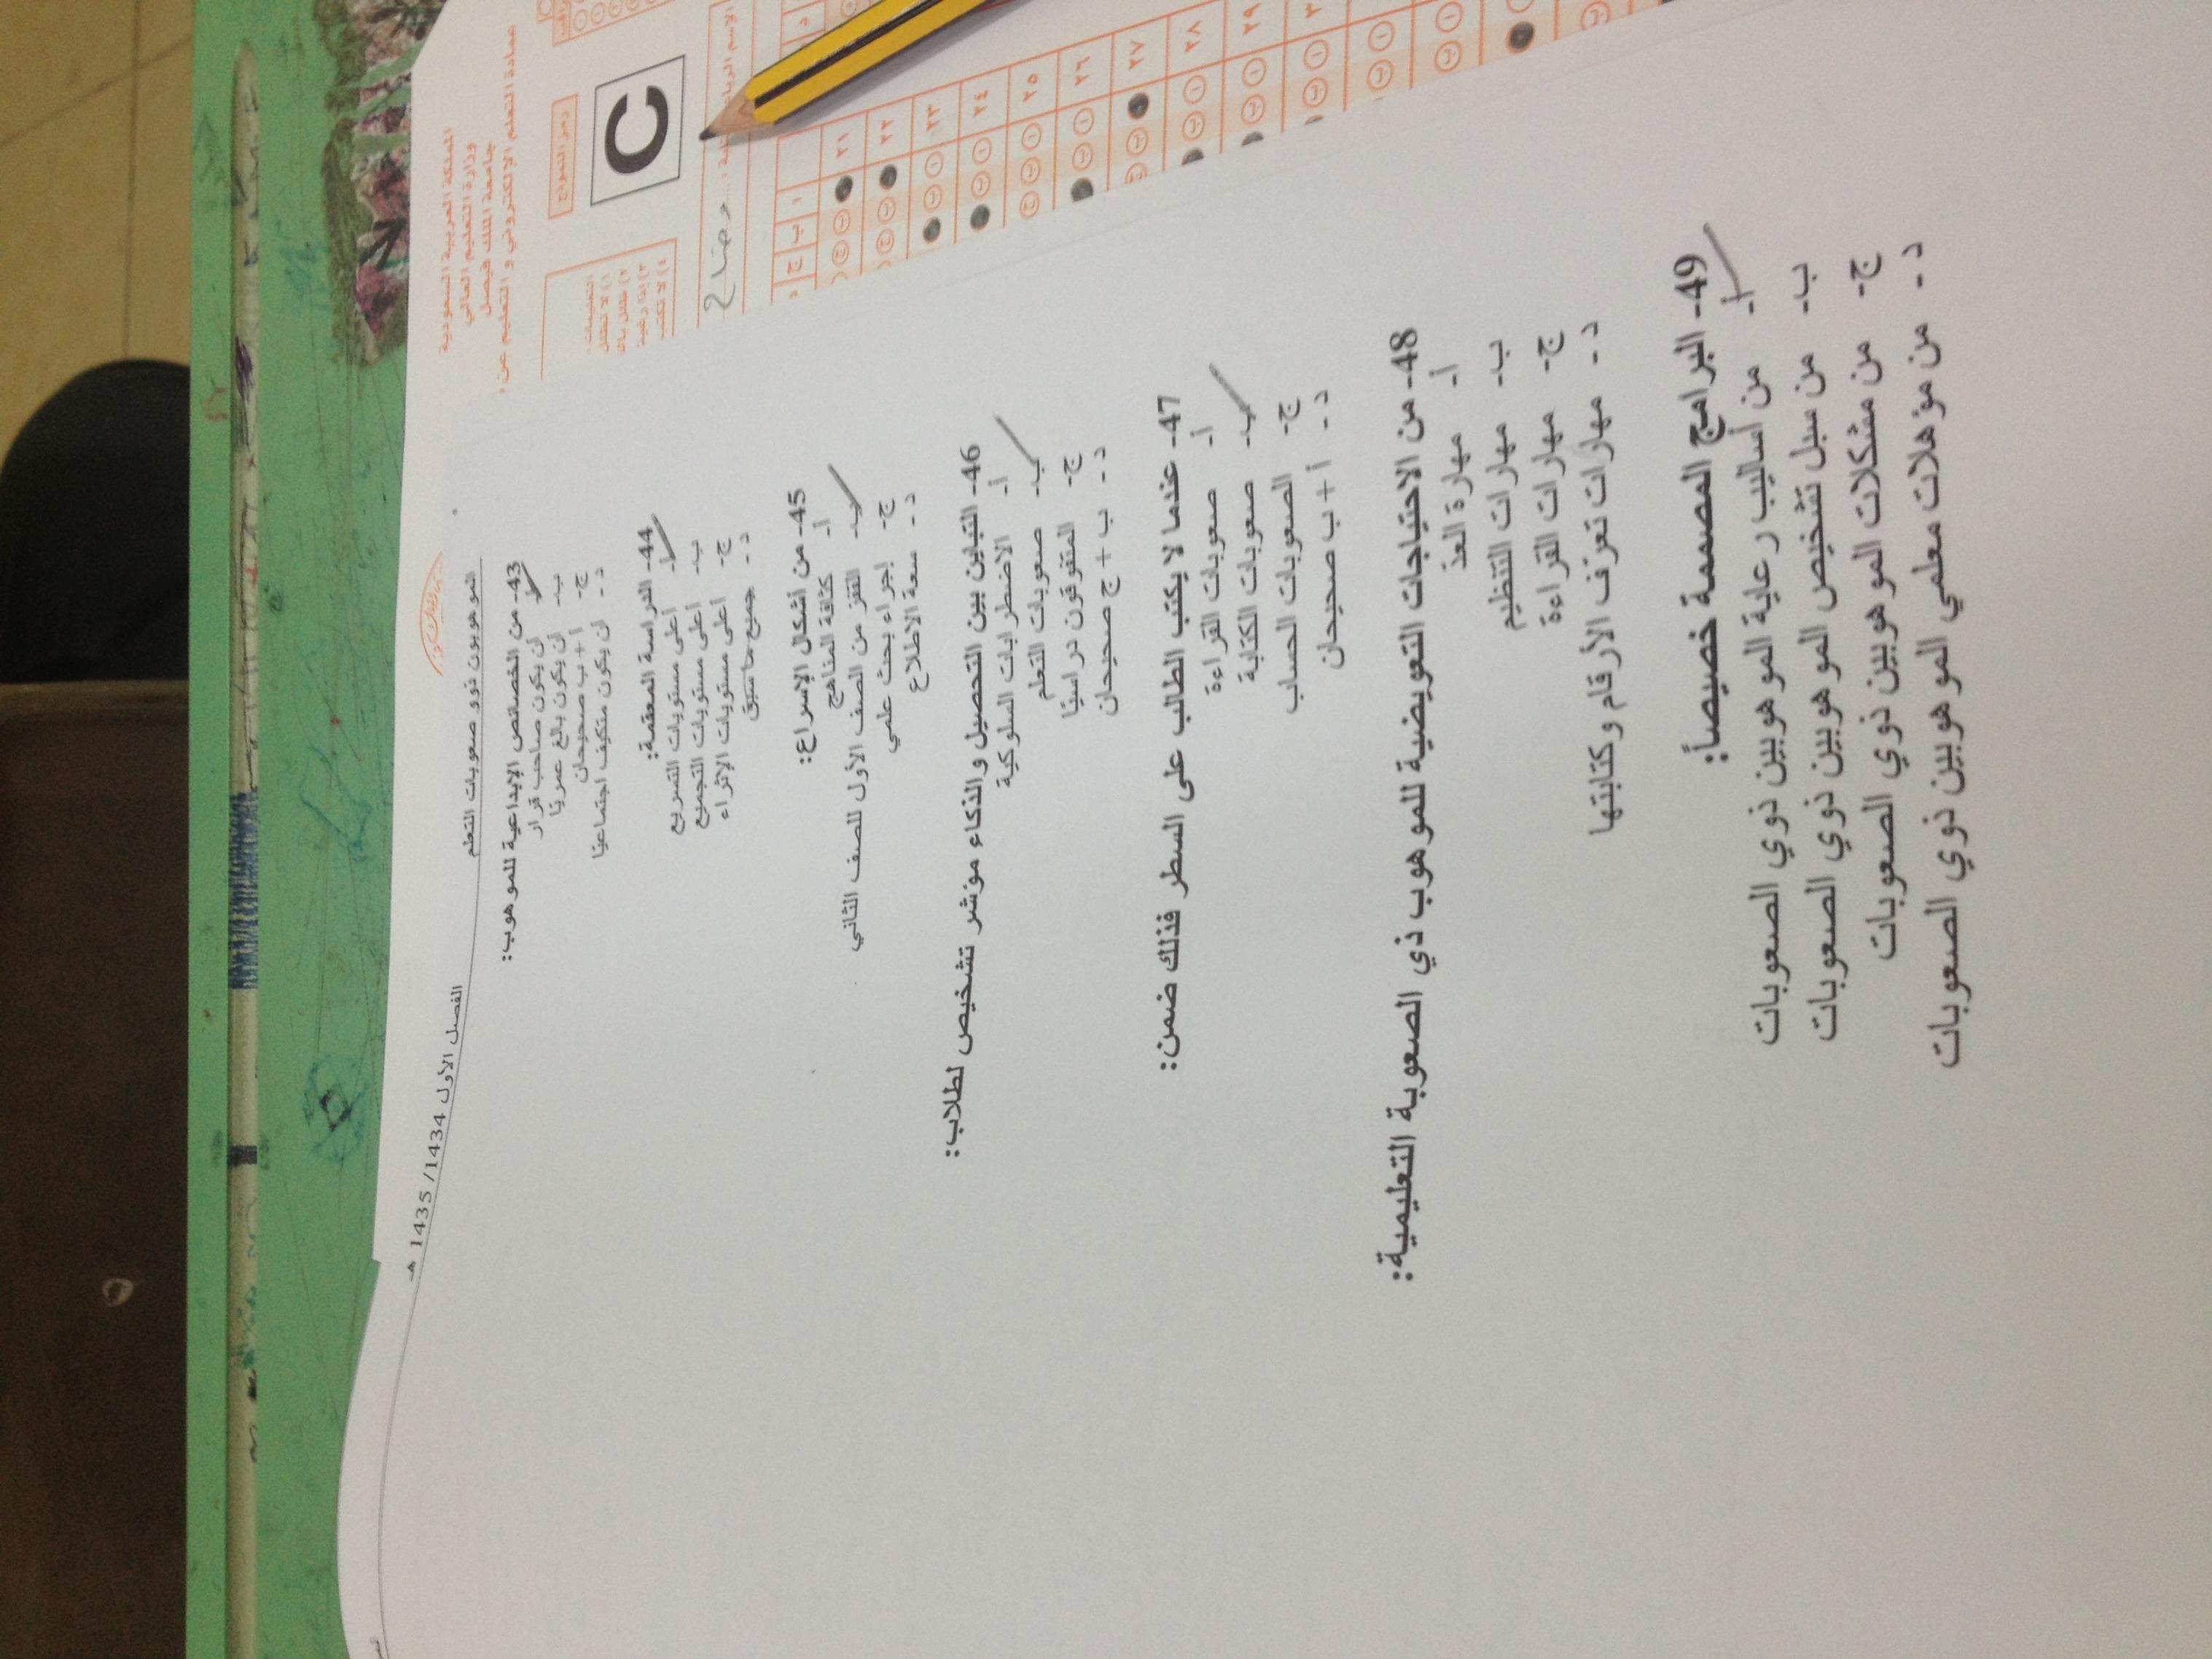 الموهوبون ذوو صعوبات التعلم
الفصل الأول 1434/ 1435 هـ
43- من الخصائص الإبداعية للموهوب:
أ- أن يكون صاحب قرار
ب- أن يكون بالغ عمريًا
ج- أ + ب صحيحان
د- أن يكون متكيف اجتماعيًا
44- الدراسة المعقمة:
أ- أعلى مستويات التسريع
ب- أعلى مستويات التجميع
ج- أعلى مستويات الإثراء
د- جميع ما سبق
45- من أشكال الإسراع:
أ- كثافة المناهج
ب- القفز من الصف الأول للصف الثاني
ج- إجراء بحث علمي
د- سعة الاطلاع
46- التباين بين التحصيل والذكاء مؤشر تشخيص لطلاب:
أ- الاضطرابات السلوكية
ب- صعوبات التعلم
ج- المتفوقون دراسيًا
د- ب + ج صحيحان
47- عندما لا يكتب الطالب على السطر فذلك ضمن:
أ- صعوبات القراءة
ب- صعوبات الكتابة
ج- الصعوبات الحساب
د- أ + ب صحيحان
48- من الاحتياجات التعويضية للموهوب ذي الصعوبة التعليمية:
أ- مهارة العدّ
ب- مهارات التنظيم
ج- مهارات القراءة
د- مهارات تعرّف الأرقام وكتابتها
49- البرامج المصممة خصيصاً:
أ- من أساليب رعاية الموهوبين ذوي الصعوبات
ب- من سبل تشخيص الموهوبين ذوي الصعوبات
ج- من مشكلات الموهوبين ذوي الصعوبات
د- من مؤهلات معلمي الموهوبين ذوي الصعوبات
المملكة العربية السعودية
وزارة التعليم العالي
جامعة الملك فيصل
عمادة التعلم الإلكتروني و التعليم عن
رمز النموذج
C
التعليمات :
الاسم الرباعي
أ ب ج د
٢١
٢٢
٢٣
٢٤
٢٥
٢٦
٢٧
٢٨
٢٩